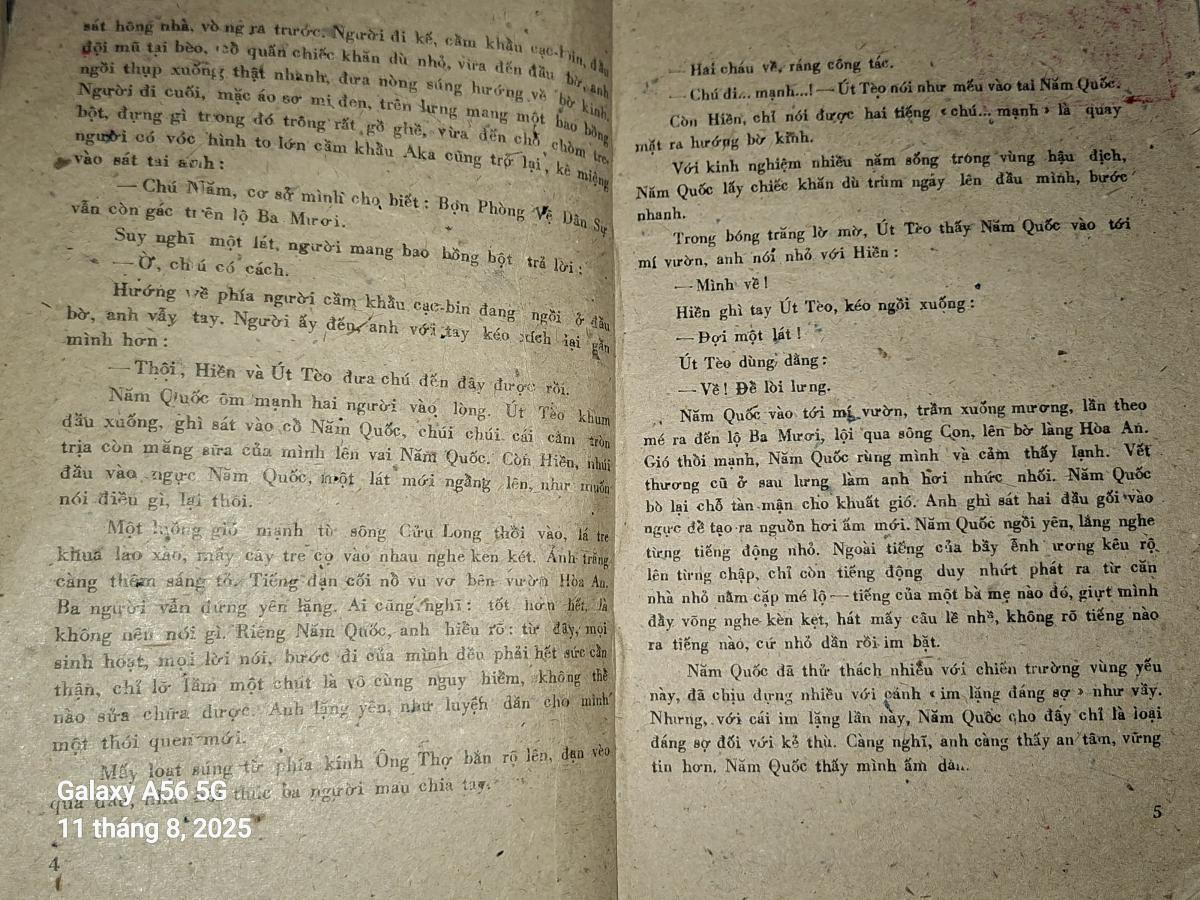 sát hông nhà, vòng ra trước. Người đi kế, cầm khẩu cạc-bin, đầu
đội mũ tai bèo, cổ quấn chiếc khăn dù nhỏ, vừa đến đầu bờ, anh
ngồi thụp xuống thật nhanh, đưa nòng súng hướng về bờ kinh.
Người đi cuối, mặc áo sơ mi đen, trên lưng mang một bao bồng
bột, đựng gì trong đó trông rất gồ ghề, vừa đến chỗ chòm tre,
người có vóc hình to lớn cầm khẩu Aka cũng trở lại, kề miệng
vào sát tai anh:
— Chú Năm, cơ sở mình cho biết: Bọn Phòng Vệ Dân Sự
vẫn còn gác trên lộ Ba Mươi.
Suy nghĩ một lát, người mang bao bồng bột trả lời:
— Ờ, chú có cách.
Hướng về phía người cầm khẩu cạc-bin đang ngồi ở đầu
bờ, anh vẫy tay. Người ấy đến, anh với tay kéo xích lại gần
mình hơn:
— Thôi, Hiền và Út Tèo đưa chú đến đây được rồi.
Năm Quốc ôm mạnh hai người vào lòng. Út Tèo khum
đầu xuống, ghì sát vào cổ Năm Quốc, chúi chúi cái cằm tròn
trịa còn măng sữa của mình lên vai Năm Quốc. Còn Hiền, nhúi
đầu vào ngực Năm Quốc, một lát mới ngẩng lên, như muốn
nói điều gì, lại thôi.
Một luồng gió mạnh từ sông Cửu Long thổi vào, lá tre
khua lao xao, mấy cây tre cọ vào nhau nghe kèn kẹt. Ánh trăng
càng thêm sáng tỏ. Tiếng đạn cối nổ vu vơ bên vườn Hòa An.
Ba người vẫn đứng yên lặng. Ai cũng nghĩ: tốt hơn hết, là
không nên nói gì. Riêng Năm Quốc, anh hiểu rõ: từ đây, mọi
sinh hoạt, mọi lời nói, bước đi của mình đều phải hết sức cẩn
thận, chỉ lỡ lầm một chút là vô cùng nguy hiểm, không thể
nào sửa chữa được. Anh lặng yên, như luyện dần cho mình
một thói quen mới.
Mấy loạt súng từ phía kinh Ông Thợ bắn rộ lên, đạn vèo
qua đầu, như thúc ba người mau chia tay.
4
— Hai cháu về, ráng công tác.
— Chú đi... mạnh...! — Út Tèo nói như mếu vào tai Năm Quốc.
Còn Hiền, chỉ nói được hai tiếng «chú... mạnh» là quay
mặt ra hướng bờ kinh.
Với kinh nghiệm nhiều năm sống trong vùng hậu địch,
Năm Quốc lấy chiếc khăn dù trùm ngay lên đầu mình, bước
nhanh.
Trong bóng trăng lờ mờ, Út Tèo thấy Năm Quốc vào tới
mí vườn, anh nói nhỏ với Hiền:
— Mình về!
Hiền ghì tay Út Tèo, kéo ngồi xuống:
— Đợi một lát!
Út Tèo dùng dằng:
— Về! Để lòi lưng.
Năm Quốc vào tới mí vườn, trầm xuống mương, lần theo
mé ra đến lộ Ba Mươi, lội qua sông Con, lên bờ làng Hòa An.
Gió thổi mạnh, Năm Quốc rùng mình và cảm thấy lạnh. Vết
thương cũ ở sau lưng làm anh hơi nhức nhối. Năm Quốc
bò lại chỗ tàn mận cho khuất gió. Anh ghì sát hai đầu gối vào
ngực để tạo ra nguồn hơi ấm mới. Năm Quốc ngồi yên, lắng nghe
từng tiếng động nhỏ. Ngoài tiếng của bầy ễnh ương kêu rộ
lên từng chập, chỉ còn tiếng động duy nhứt phát ra từ căn
nhà nhỏ nằm cặp mé lộ — tiếng của một bà mẹ nào đó, giựt mình
đẩy võng nghe kèn kẹt, hát mấy câu lề nhề, không rõ tiếng nào
ra tiếng nào, cứ nhỏ dần rồi im bặt.
Năm Quốc đã thử thách nhiều với chiến trường vùng yếu
này, đã chịu đựng nhiều với cảnh «im lặng đáng sợ» như vầy.
Nhưng, với cái im lặng lần này, Năm Quốc cho đấy chỉ là loại
đáng sợ đối với kẻ thù. Càng nghĩ, anh càng thấy an tâm, vững
tin hơn. Năm Quốc thấy mình ấm dần.
5
Galaxy A56 5G
11 tháng 8, 2025